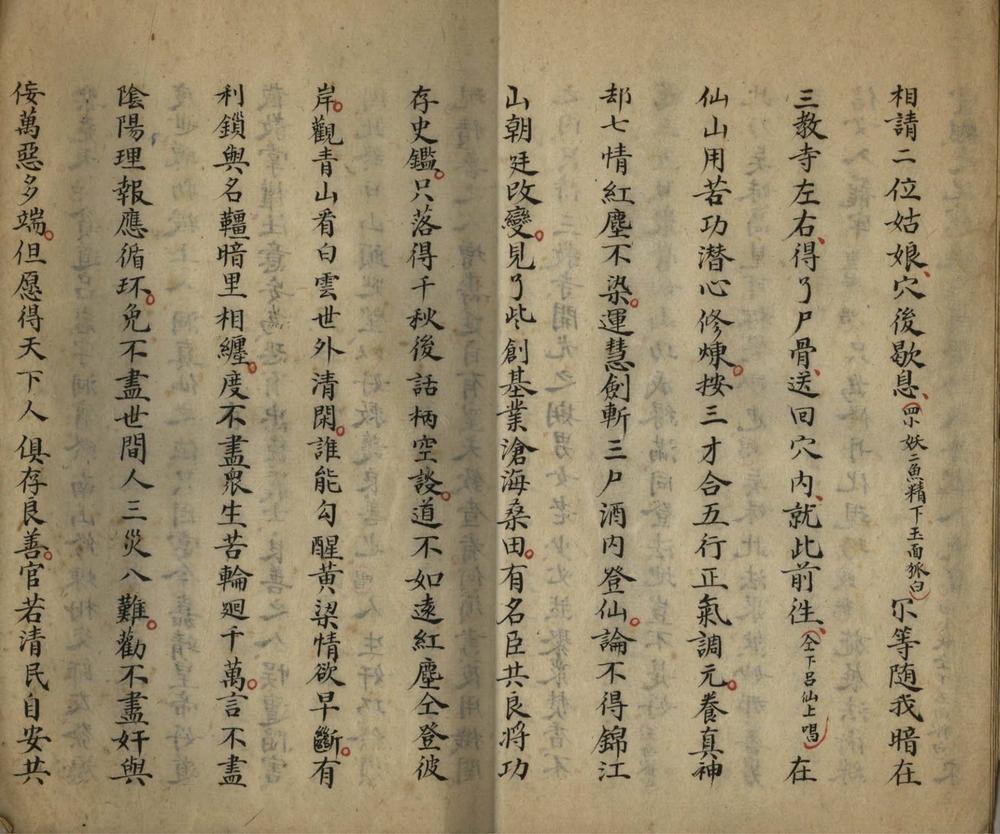 相請二位姑娘、穴後歇息、(四小妖二魚精下玉面狐白)尒等随我暗在
三教寺左右、得了尸骨、送回穴內、就此前徃、(仝下呂仙上唱)在
仙山用苦功潜心修煉。按三才合五行正氣調元。養真神
却七情紅塵不染。運慧劍斬三尸酒內登仙。論不得錦江
山朝廷改變。見了些創基業滄海桑田。有名臣共良將功
存史鑑。只落得千秋後話柄空談。道不如遠紅塵仝登彼
岸。觀青山看白雲世外清閑。誰能勾醒黃梁情欲早斷。有
利鎖與名韁暗里相纏。度不盡衆生苦輪廻千萬。言不盡
陰陽理報應循环。免不盡世間人三災八難。勸不盡奸與
佞萬惡多端。但愿得天下人俱存良善。官若清民自安共